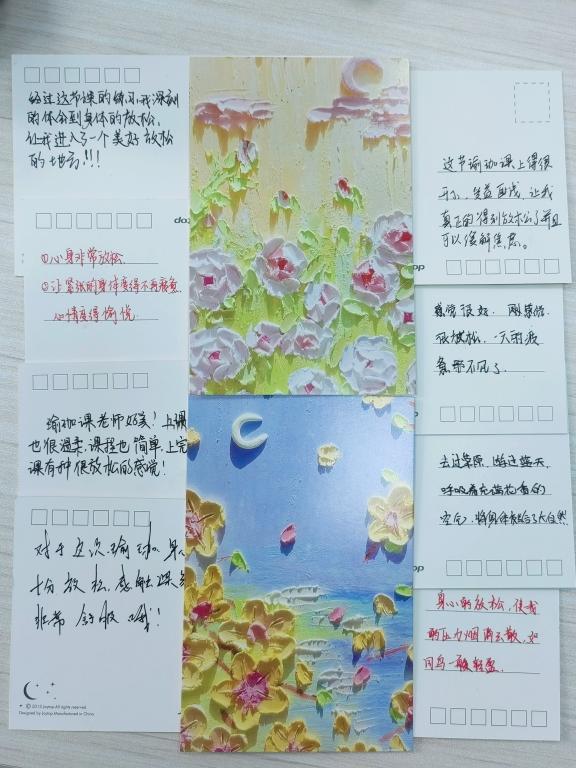 经过这节课的练习,我深刻
的体会到身体的放松,
让我进入了一个美好放松
的地方!!!
①心身非常放松
②让紧张的身体变得不再疲惫
心情变得愉悦
瑜珈课老师好美!上课
也很温柔.课程也简单.上完
课有种很放松的感觉!
对于这次瑜珈.身心
十分放松,感触
非常舒服 哦!!
© 2015 Joytop All rights reserved.
Designed by Joytop Manufactured in China
这节瑜珈课上得很
开心,受益匪浅,让我
真正的得到放松了并且
可以缓解焦虑。
感觉很好.
很放松,一天的疲
惫都不见了.
去过草原,游过蓝天,
呼吸着充满花香的
空气.将身体融合了大自然
身心的放松,使我
的压力烟消云散,如
同鸟一般轻盈.